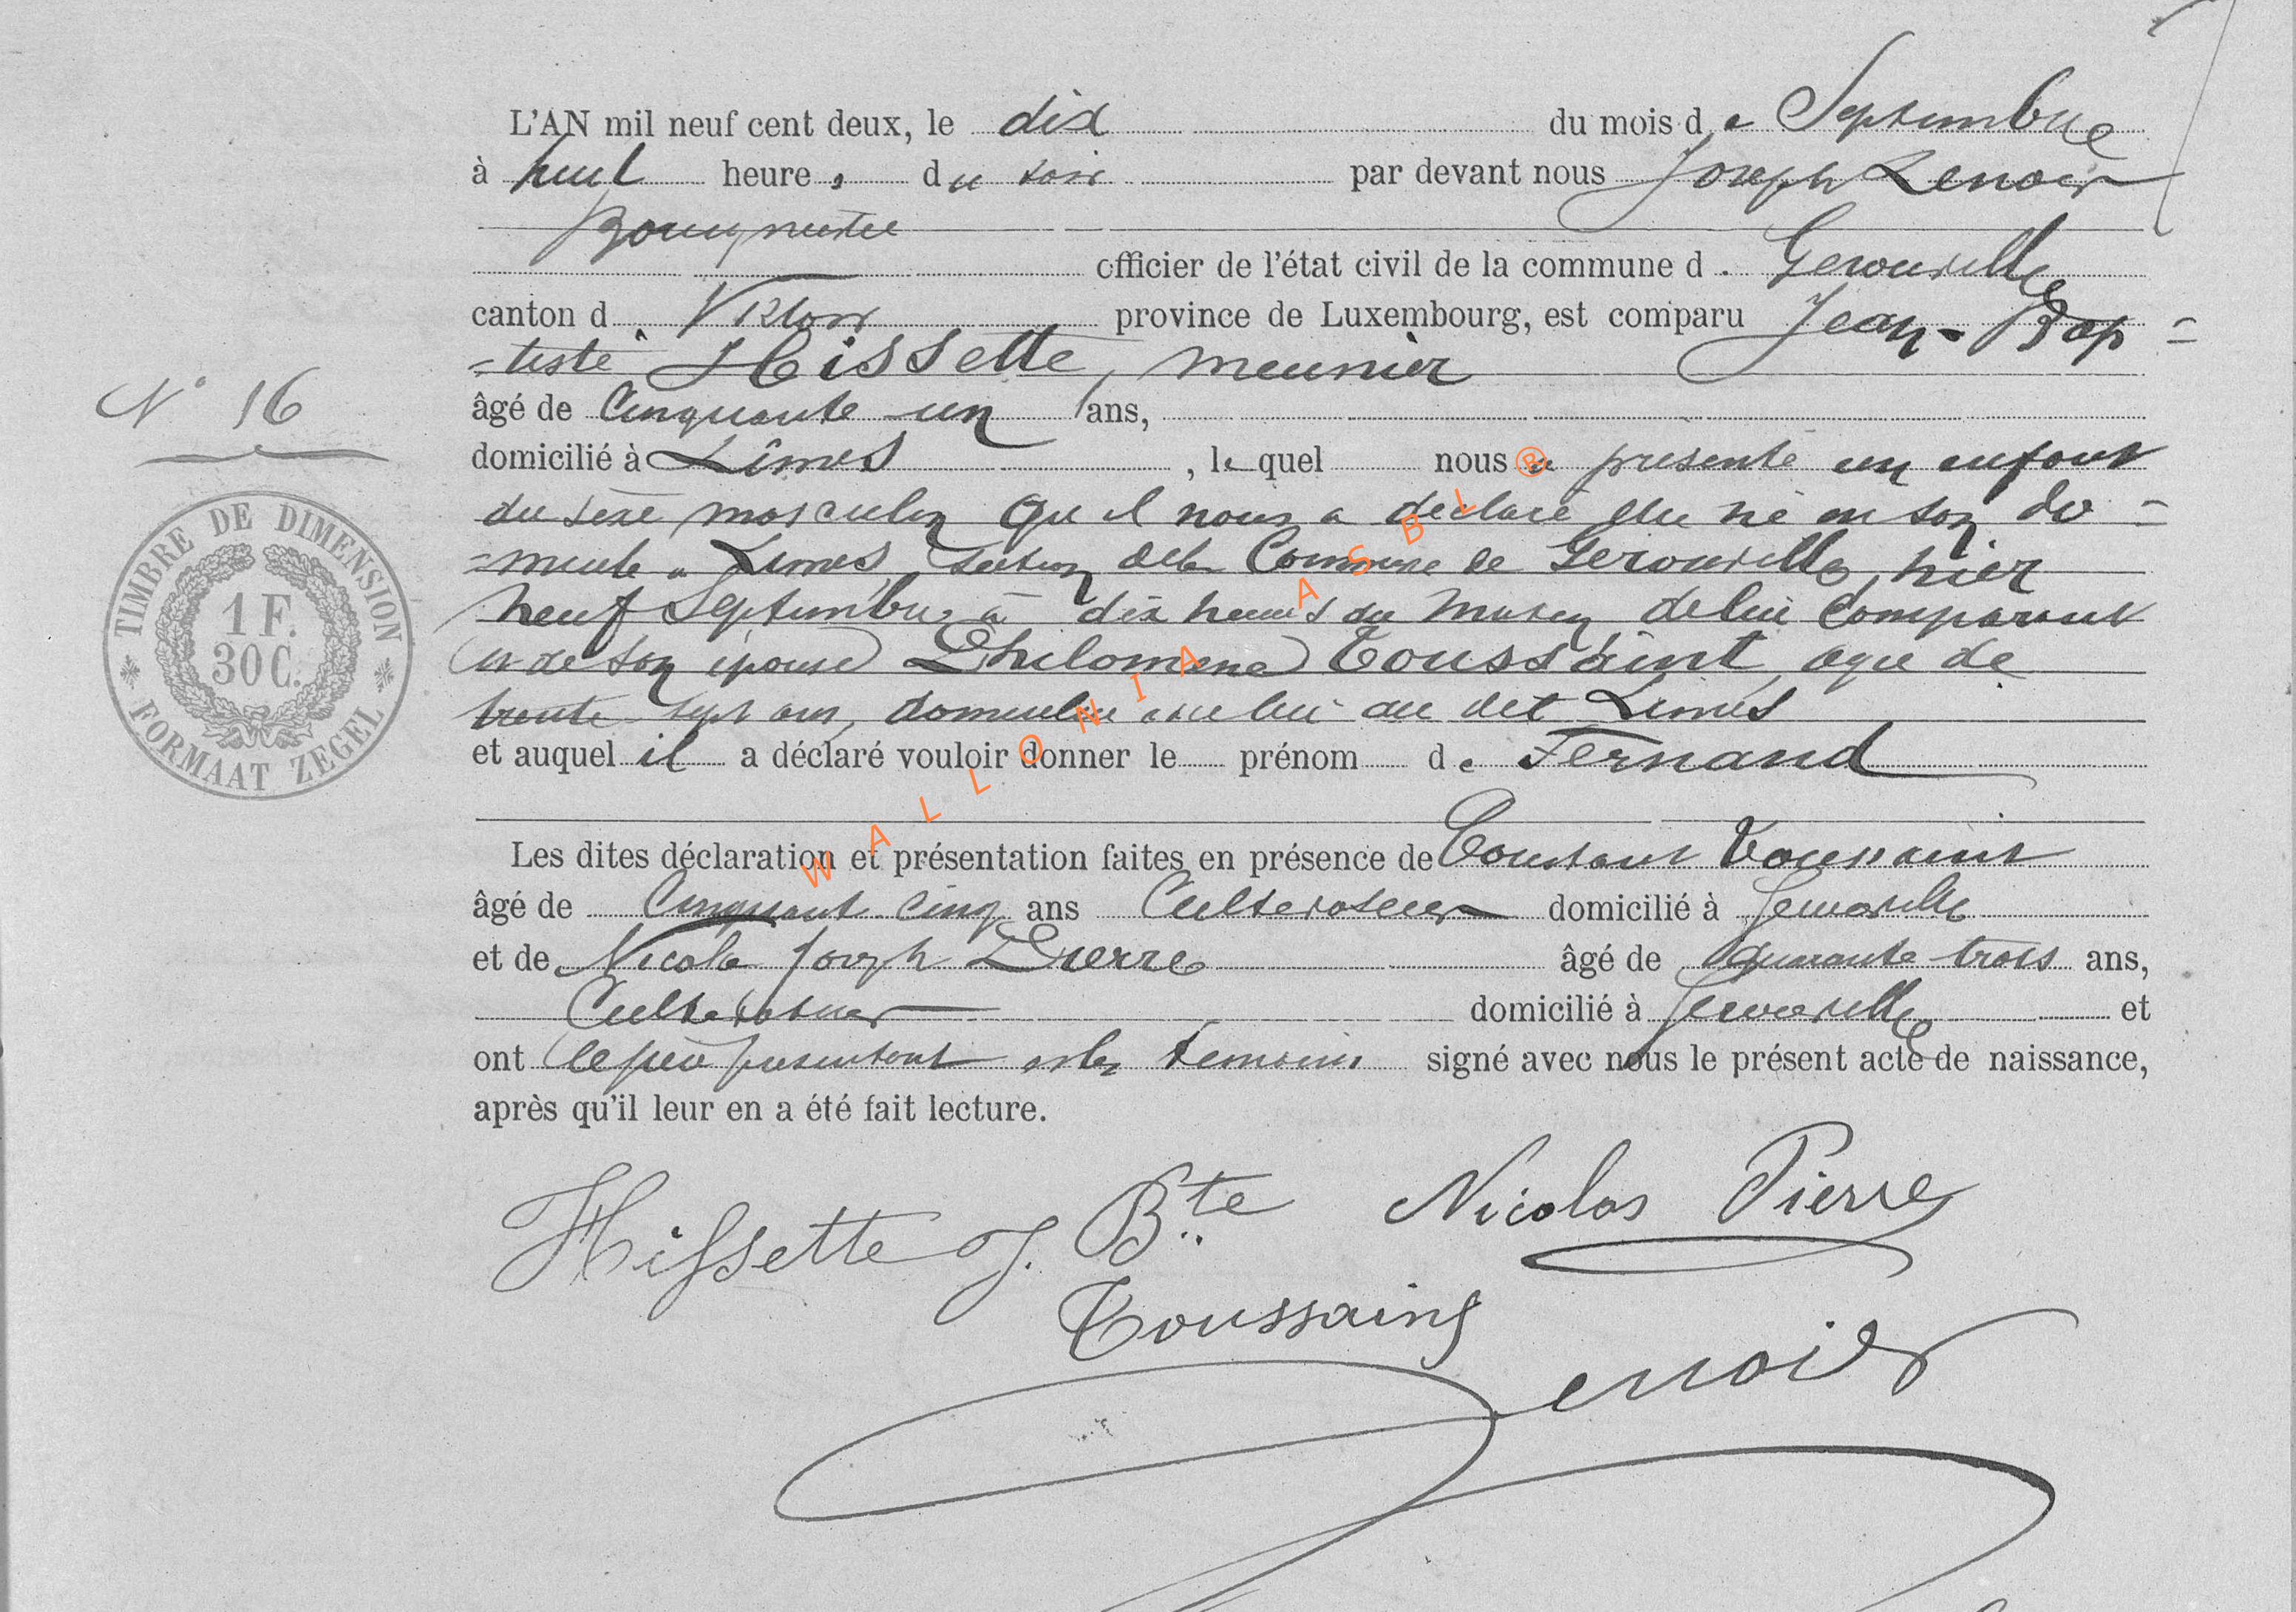 L'AN mil neuf cent deux, le dix du mois de Septembre
à huit heures du soir par devant nous Joseph Lenoir
Bourgmestre
officier de l'état civil de la commune d. Gerouville
canton d. Virton province de Luxembourg, est comparu Jean-Bap=
=tiste Hissette, meunier
N° 16
âgé de Cinquante un ans,
domicilié à Limes, lequel nous a présenté un enfant
du sexe masculin qu'il nous a déclaré être né en son do=
=micile à Limes, section de la Commune de Gerouville, hier
neuf Septembre à dix heures du matin de lui Comparant
et de son épouse Philomène Toussaint, agée de
trente sept ans, domiciliée avec lui au dit Limes
et auquel il a déclaré vouloir donner le prénom de Fernand
Les dites déclaration et présentation faites en présence de Constant Toussaint
âgé de Cinquante cinq ans Cultivateur domicilié à Gerouville
et de Nicolas Joseph Pierre âgé de quarante trois ans,
Cultivateur domicilié à Gerouville et
ont le père présentant et les témoins signé avec nous le présent acte de naissance,
après qu'il leur en a été fait lecture.
Hissette J. Bte Nicolas Pierre
Toussaint
Lenoir
TIMBRE DE DIMENSION
1 F.
30 C.
FORMAAT ZEGEL
WALLONIA ASBL ®